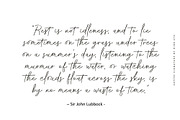 "Rest is not idleness, and to lie
sometimes on the grass under trees
on a summer's day, listening to the
murmur of the water, or watching
the clouds float across the sky, is
by no means a waste of time."
- Sir John Lubbock -